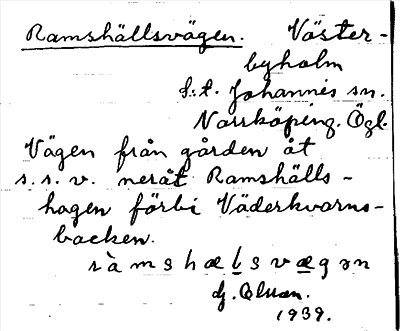 Ramshällsvägen. Väster-
byholm
S:t. Johannis sn.
Norrköping. Ögl.
Vägen från gården åt
s.s.v. neråt Ramshälls-
hagen förbi Väderkvarns-
backen.
ràmshælsvægən
1939.